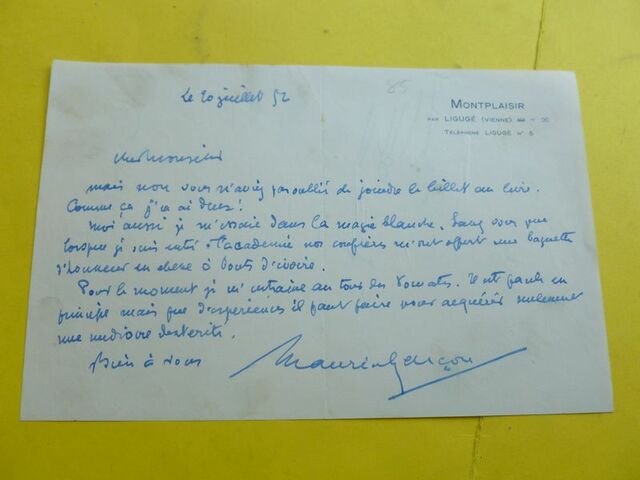 85
Le 20 juillet 52
MONTPLAISIR
PAR LIGUGÉ (VIENNE)
TÉLÉPHONE LIGUGÉ N° 5
Cher Monsieur
mais non vous n'aviez pas oublié de joindre le billet au livre.
Comme ça j'en ai deux!
moi aussi je m'essaie dans la magie blanche. Savez vous que
lorsque je suis entré à l'académie nos confrères m'ont offert une baguette
d'honneur en ebene à bouts d'ivoire.
Pour le moment je m'entraine au tour des Il est facile en
principe mais que d'expériences il faut faire pour acquérir seulement
une médiocre dextérité.
Bien à vous
Maurice Garçon